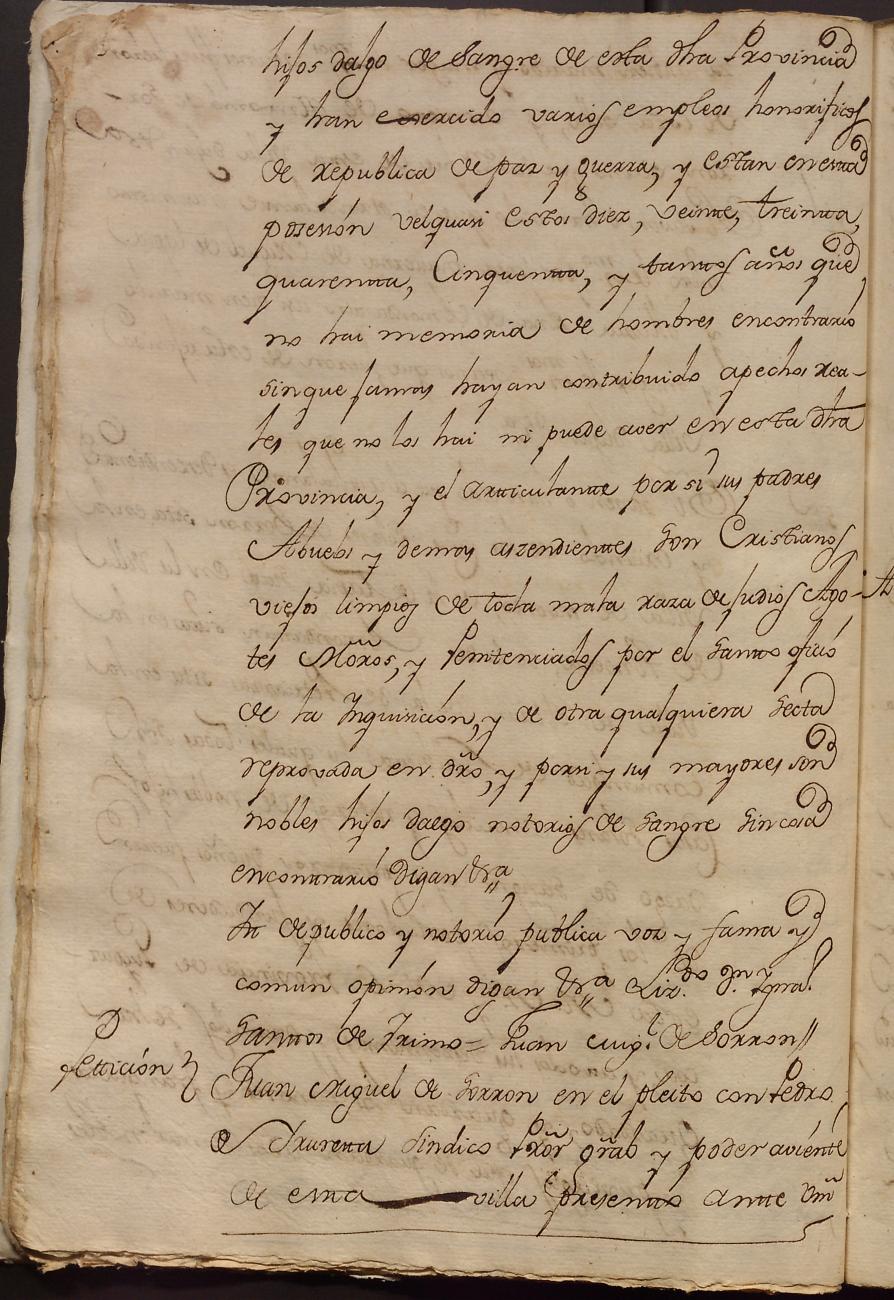 hijos dalgo de Sangre de esta dha Provincia
y han exercido varios empleos honorificos
de republica de paz y guerra, y estan en esta
posesión velquasi estos diez, veinte, treinta,
quarentta, Cinquentta, y tanttos años que
no hai memoria de hombres encontrario
sinque jamas hayan contribuido apechos rea-
les que no los hai ni puede aver en esta dha
Provincia, y el artticulantte por si sus padres
Abuelos y demas aszendienttes son Cristianos
viejos limpios de toda mala raza de Judios Ago-
tes Moros, y Penitenciados por el Santto oficio
de la Inquisición, y de otra qualquiera Secta
reprovada en dro, y porsi y sus mayores son
nobles hijos dalgo notorios de Sangre sin cosa
encontrario digan &ra
Itt de publico y nottorio publica voz y fama y
comun opinión digan &ra Lizdo Dn Ygna
Santtos de Yrimo = Juan Migl de Sorron //
Petición
Juan Miguel de Sorron en el pleito con Pedro
de Yruretta Sindico Pror gral y poder aviente
de estta villa presentto antte Vm